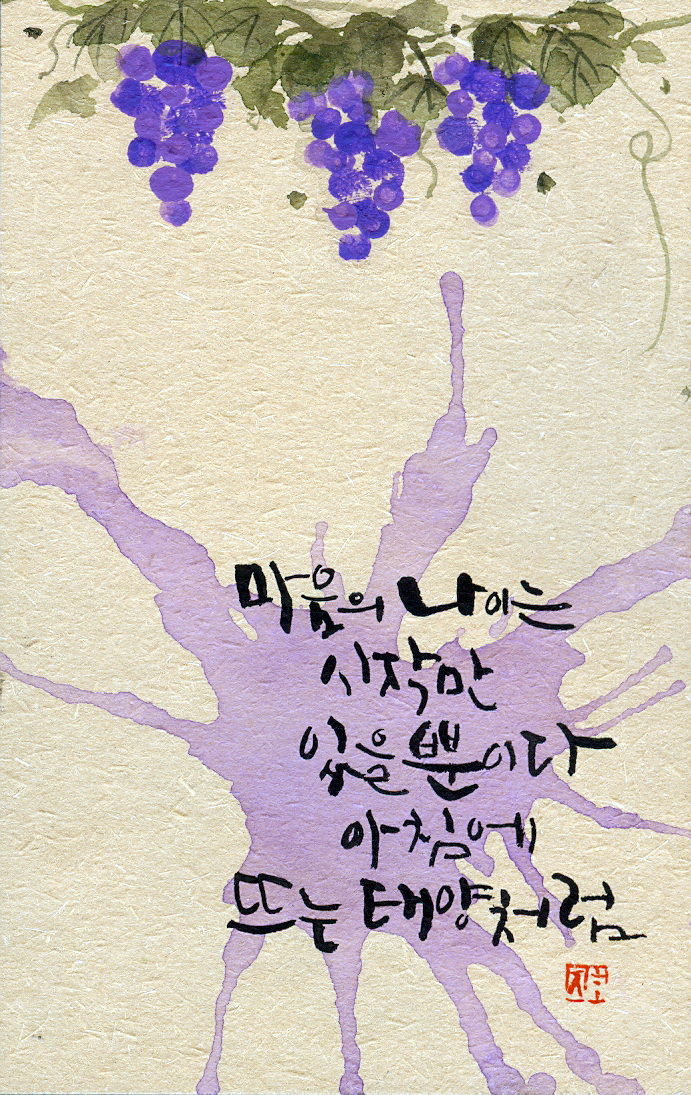 마음의 나이는
시작만
있을뿐이다
아침에
뜨는 태양처럼